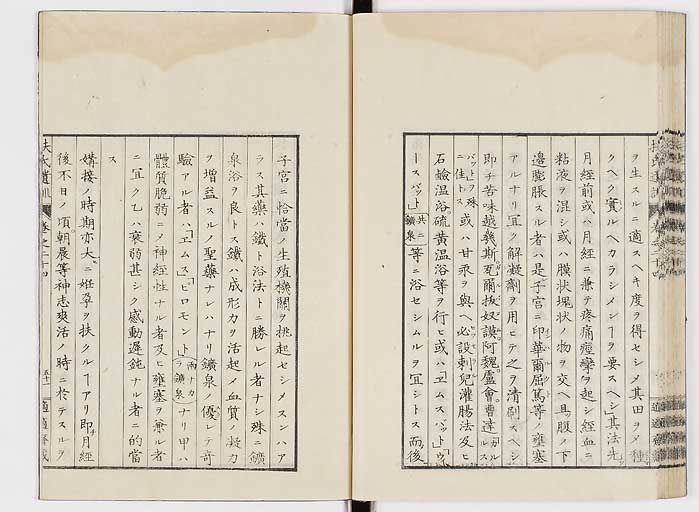 ヲ生スルニ適スヘキ度ヲ得セシメ其田ヲメ種
クヘク實ルヘカラシメンヿヲ要スヘシ其法先
月經前或ハ月經ニ兼テ疼痛痙攣ヲ起シ經血ニ
粘液ヲ混シ或ハ膜状塊状ノ物ヲ交ヘ且腹ノ下
邊膨脹スル者ハ是子宮ニ印華爾屈篤等ノ雍塞
アルナリ宜ク解凝劑ヲ用ヒテ之ヲ清刷スヘシ
即チ苦味越幾斯瓦爾抜奴謨阿魏蘆會曹達
バットヲ殊ニ佳トス 或ハ甘汞ヲ與ヘ必設剌兒灌腸法及ヒ
石鹼温浴硫黄温浴等ヲ行ヒ或ハ「エムスバット」
ースバット」共ニ鑛泉等ニ浴セシムルヲ宜シトス而後
子宮ニ恰當ノ生殖機關ヲ挑起セシメスンハア
ラス其藥ハ鐵ト浴法トニ勝レル者ナシ殊ニ鑛
泉浴ヲ良トス鐵ハ成形力ヲ活起メ血質ノ凝力
ヲ增益スルノ聖藥ナレハナリ鑛泉ノ優レテ奇
驗アル者ハ「エムス」「ピロモント」兩ナカラ鑛泉ナリ甲ハ
體質脆弱ニメ神經性ナル者及ヒ雍塞ヲ兼ル者
ニ宜ク乙ハ衰弱甚シク感動遲鈍ナル者ニ的當
ス
媾接ノ時期亦大ニ姙孕ヲ扶クルヿアリ即月經
後不日ノ頃朝晨等神志爽活ノ時ニ於テスルヲ
扶氏遺訓 卷之二十四 五十一 適適齋藏